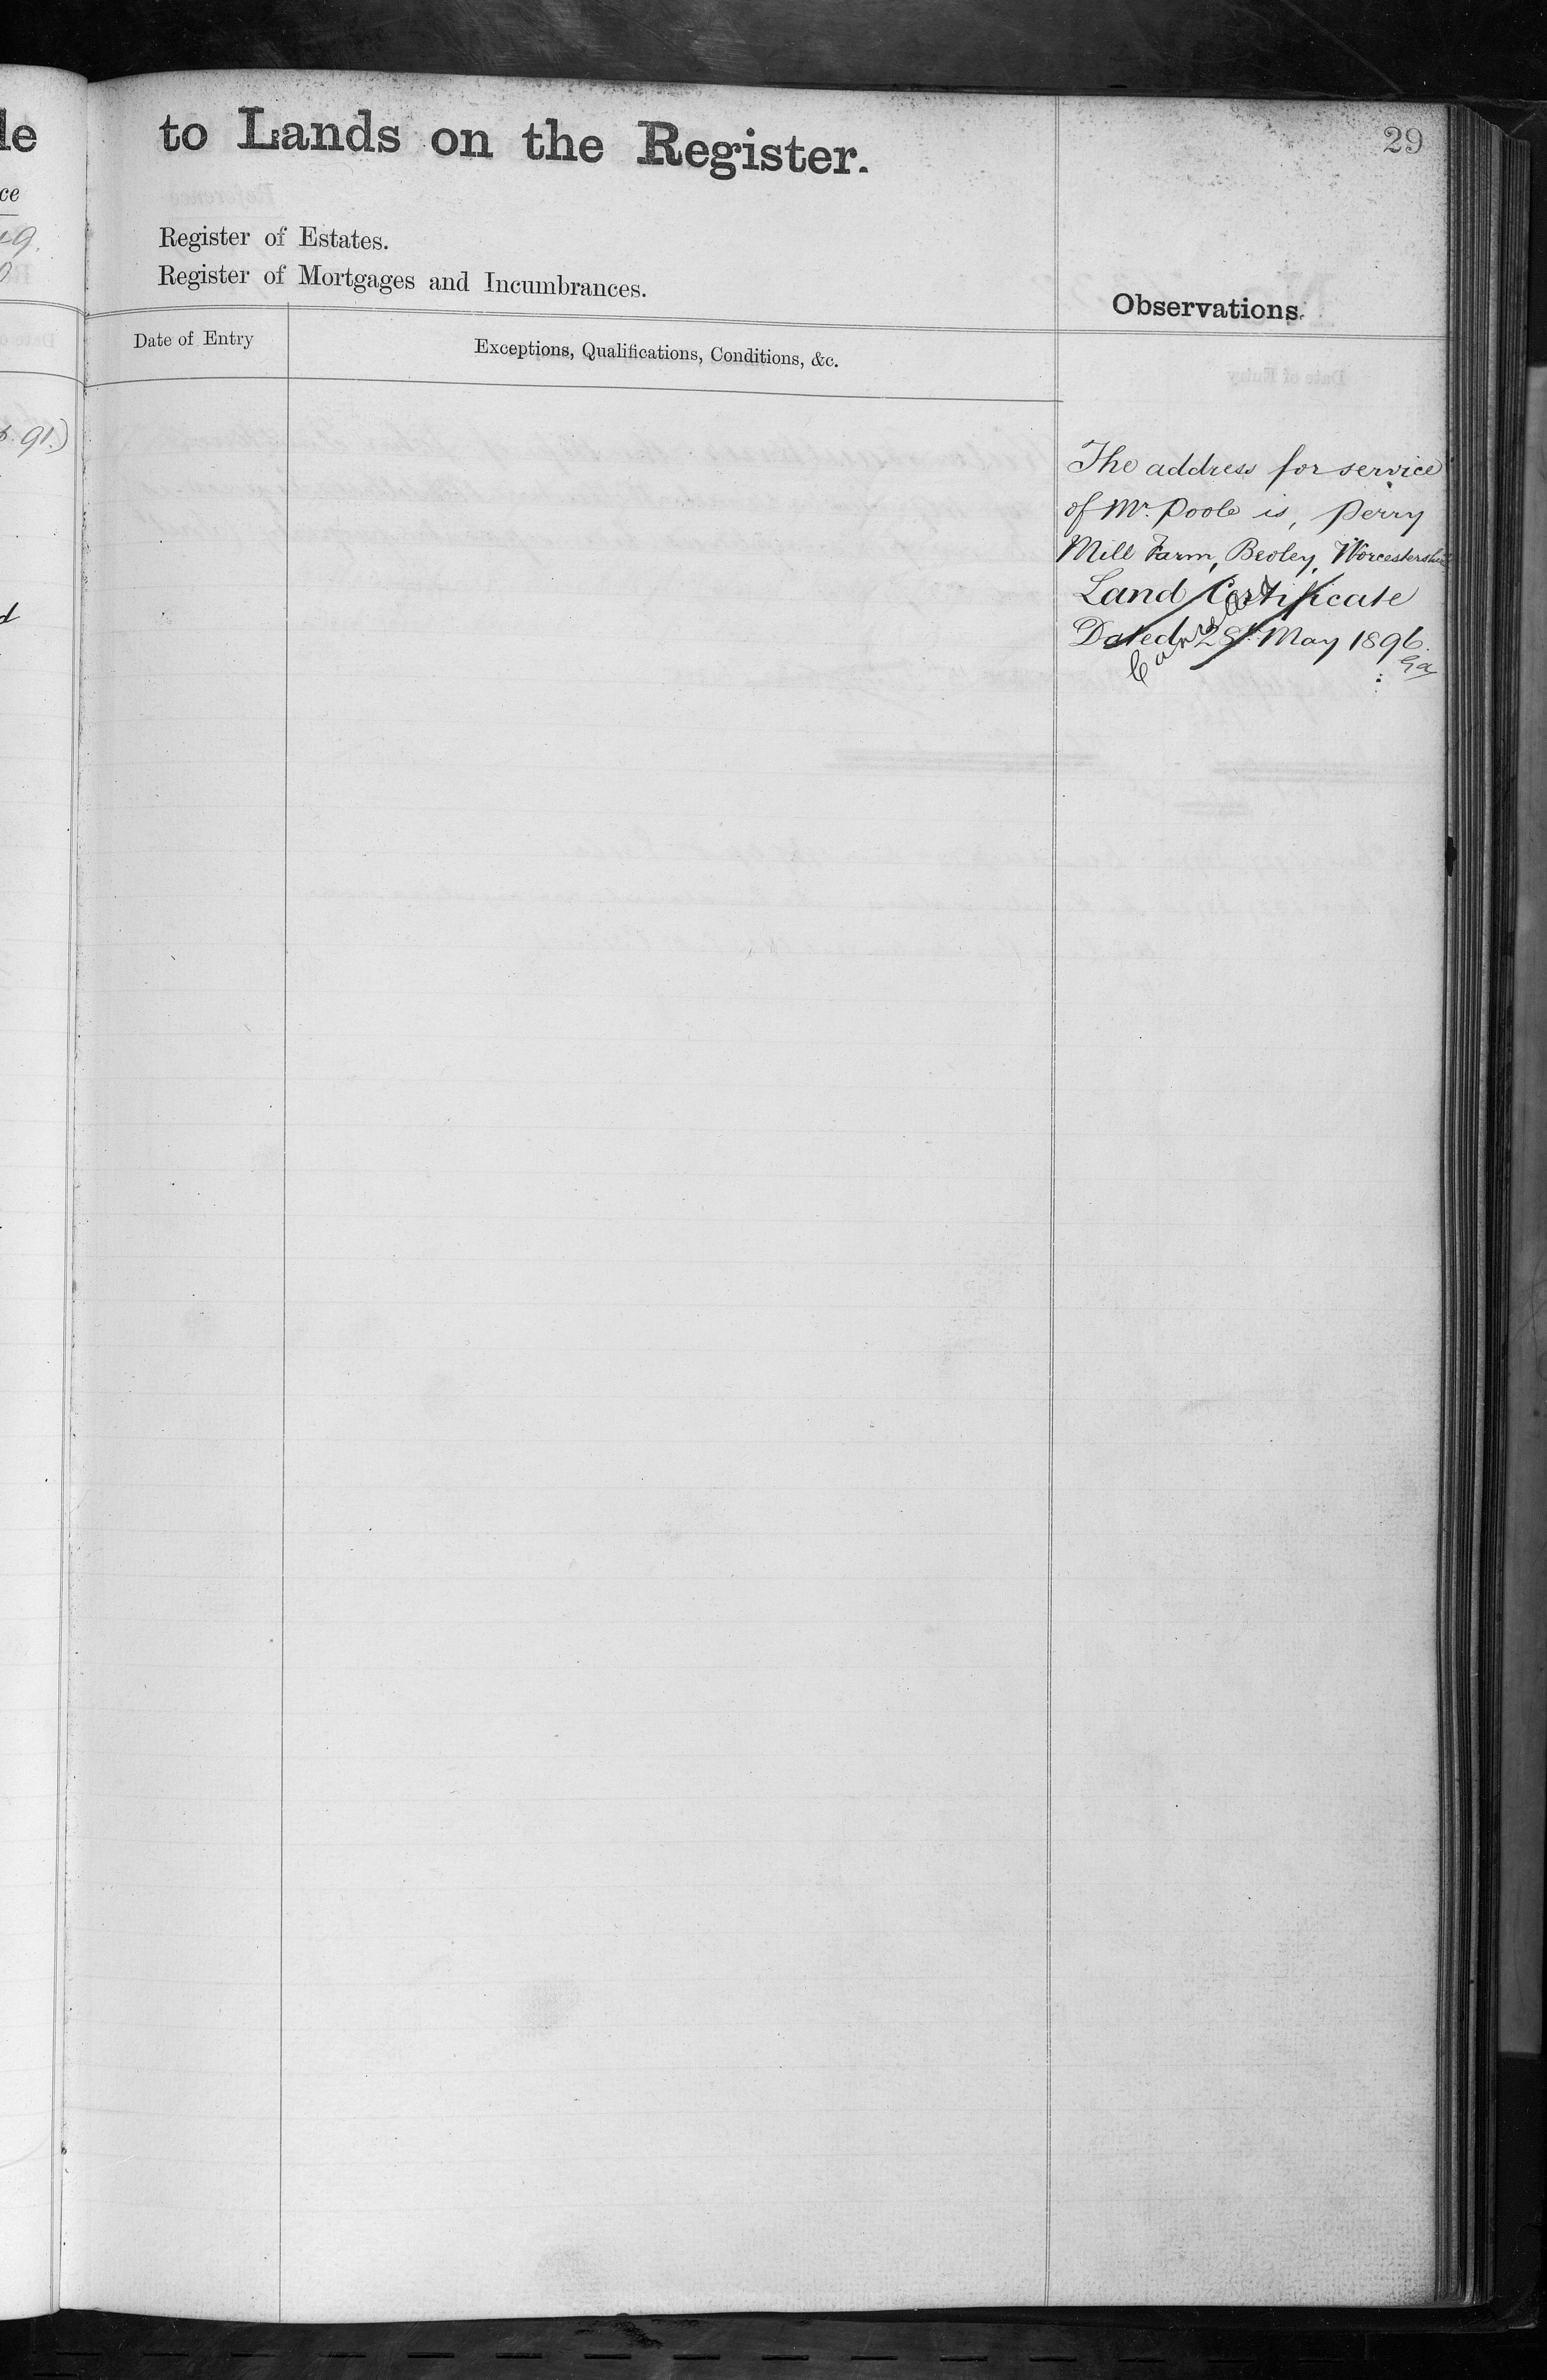 le
ce
29
to Lands on the Register.
Register of Estates.
Register of Mortgages and Incumbrances.
Observations.
Date of Entry
Exceptions, Qualifications, Conditions, &c.
91.)
The address for service
of Mr. Poole is, Perry
Mill Farm, Beoley, Worcestershire
Land Certificate
Dated 28th May 1896.
Cancelled